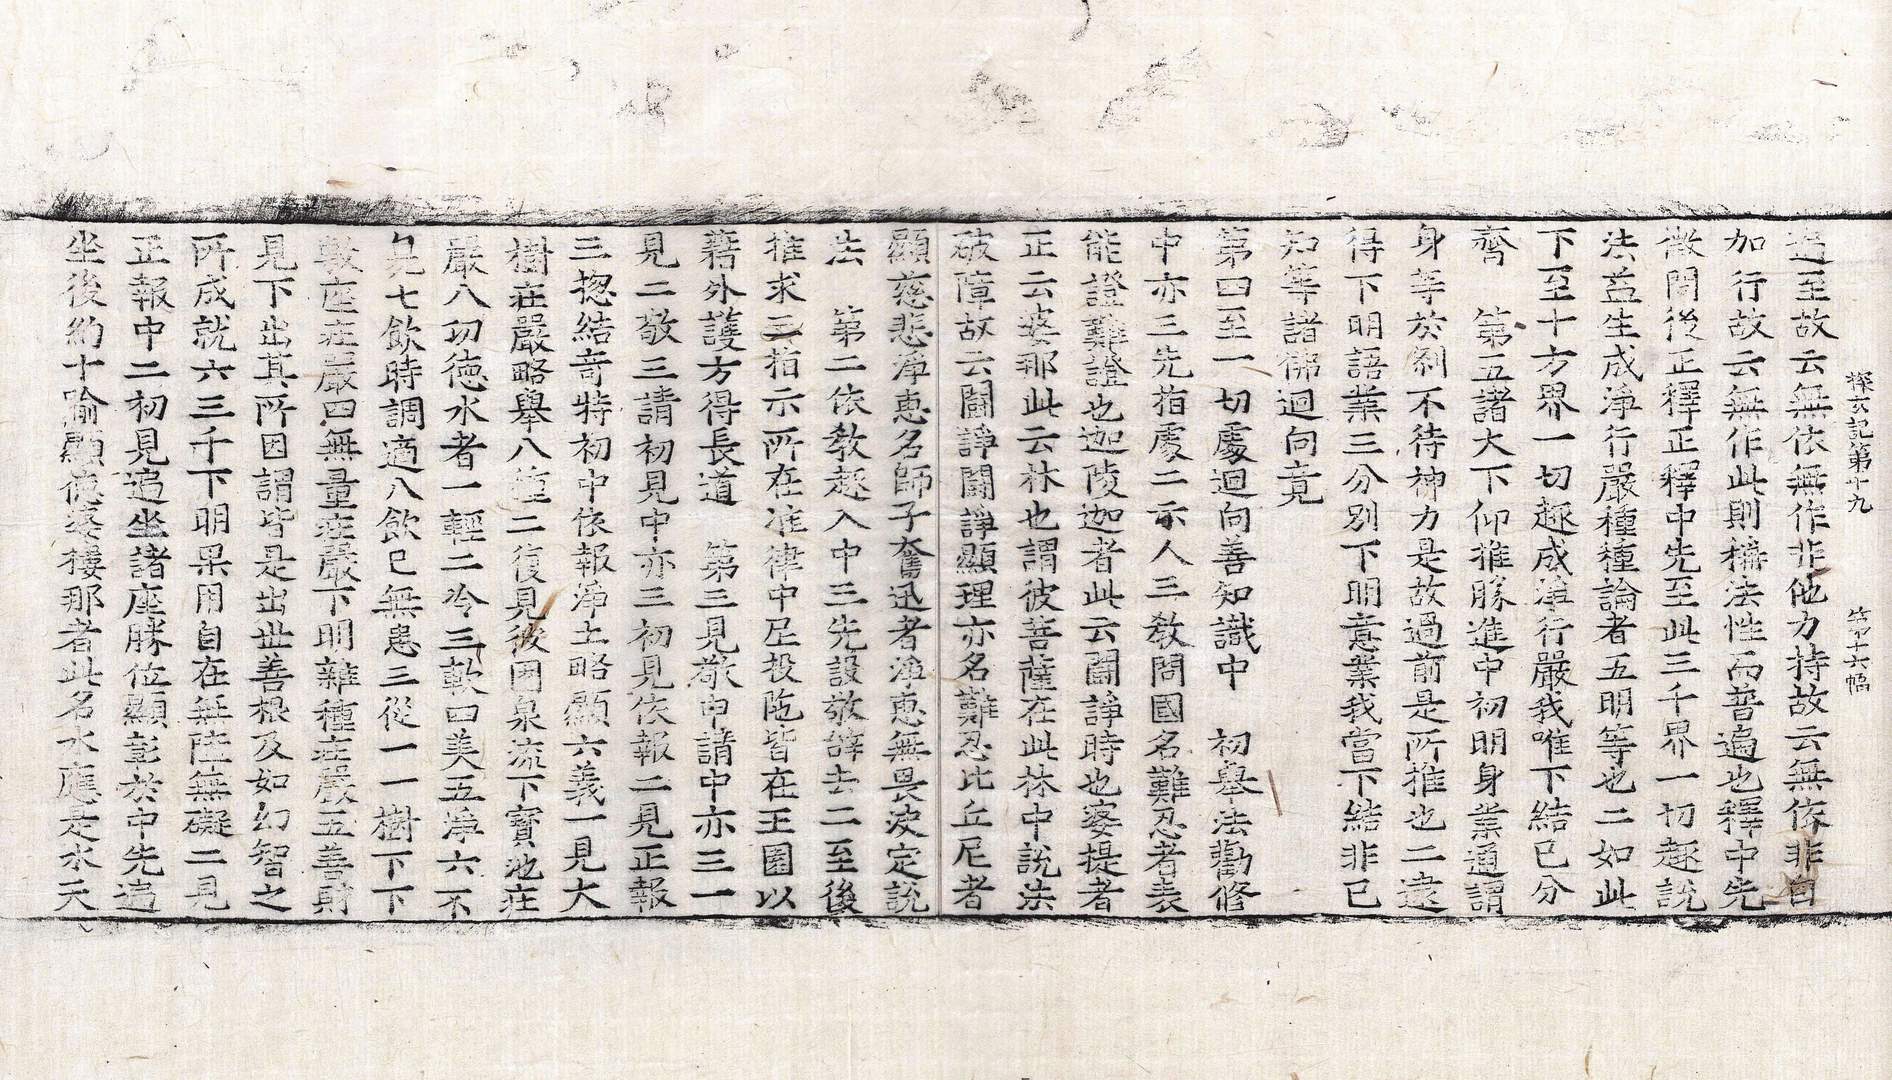 探玄記第十九　第十六幅
遍至故云無依無作非他力持故云無依非自
加行故云無作此則稱法性而普遍也釋中先
徴問後正釋正釋中先至此三千界一切趣說
法益生成淨行嚴種種論者五明等也二如此
下至十方界一切趣成淨行嚴我唯下結已分
齊　第五諸大下仰推勝進中初明身業通謂
身等於刹不待神力是故過前是所推也二遠
得下明語業三分別下明意業我當下結非已
知等諸佛迴向竟
第四至一切處迴向善知識中　初舉法勸修
中亦三先指處二示人三教問國名難忍者表
能證難證也迦陵迦者此云鬪諍時也婆提者
正云婆那此云林也謂彼菩薩在此林中說法
破障故云鬪諍鬪諍顯理亦名難忍比丘尼者
顯慈悲淨惠名師子奮迅者淨惠無畏決定說
法　第二依教趣入中三先設敬辭去二至後
推求三指示所在准律中尼投陁皆在王園以
藉外護方得長道　第三見敬申請中亦三一
見二敬三請初見中亦三初見依報二見正報
三揔結奇特初中依報淨土略顯六義一見大
樹莊嚴略舉八種二復見彼因泉流下寶池莊
嚴八功德水者一輕二冷三軟四美五淨六不
臭七飲時調適八飲已無患三從一一樹下下
敷座莊嚴四無量莊嚴下明雜種莊嚴五善財
見下出其所因謂皆是出世善根及如幻智之
所成就六三千下明果用自在無障無礙二見
正報中二初見遍坐諸座勝位顯彰於中先遍
坐後約十喻顯德婆樓那者此名水應是水天